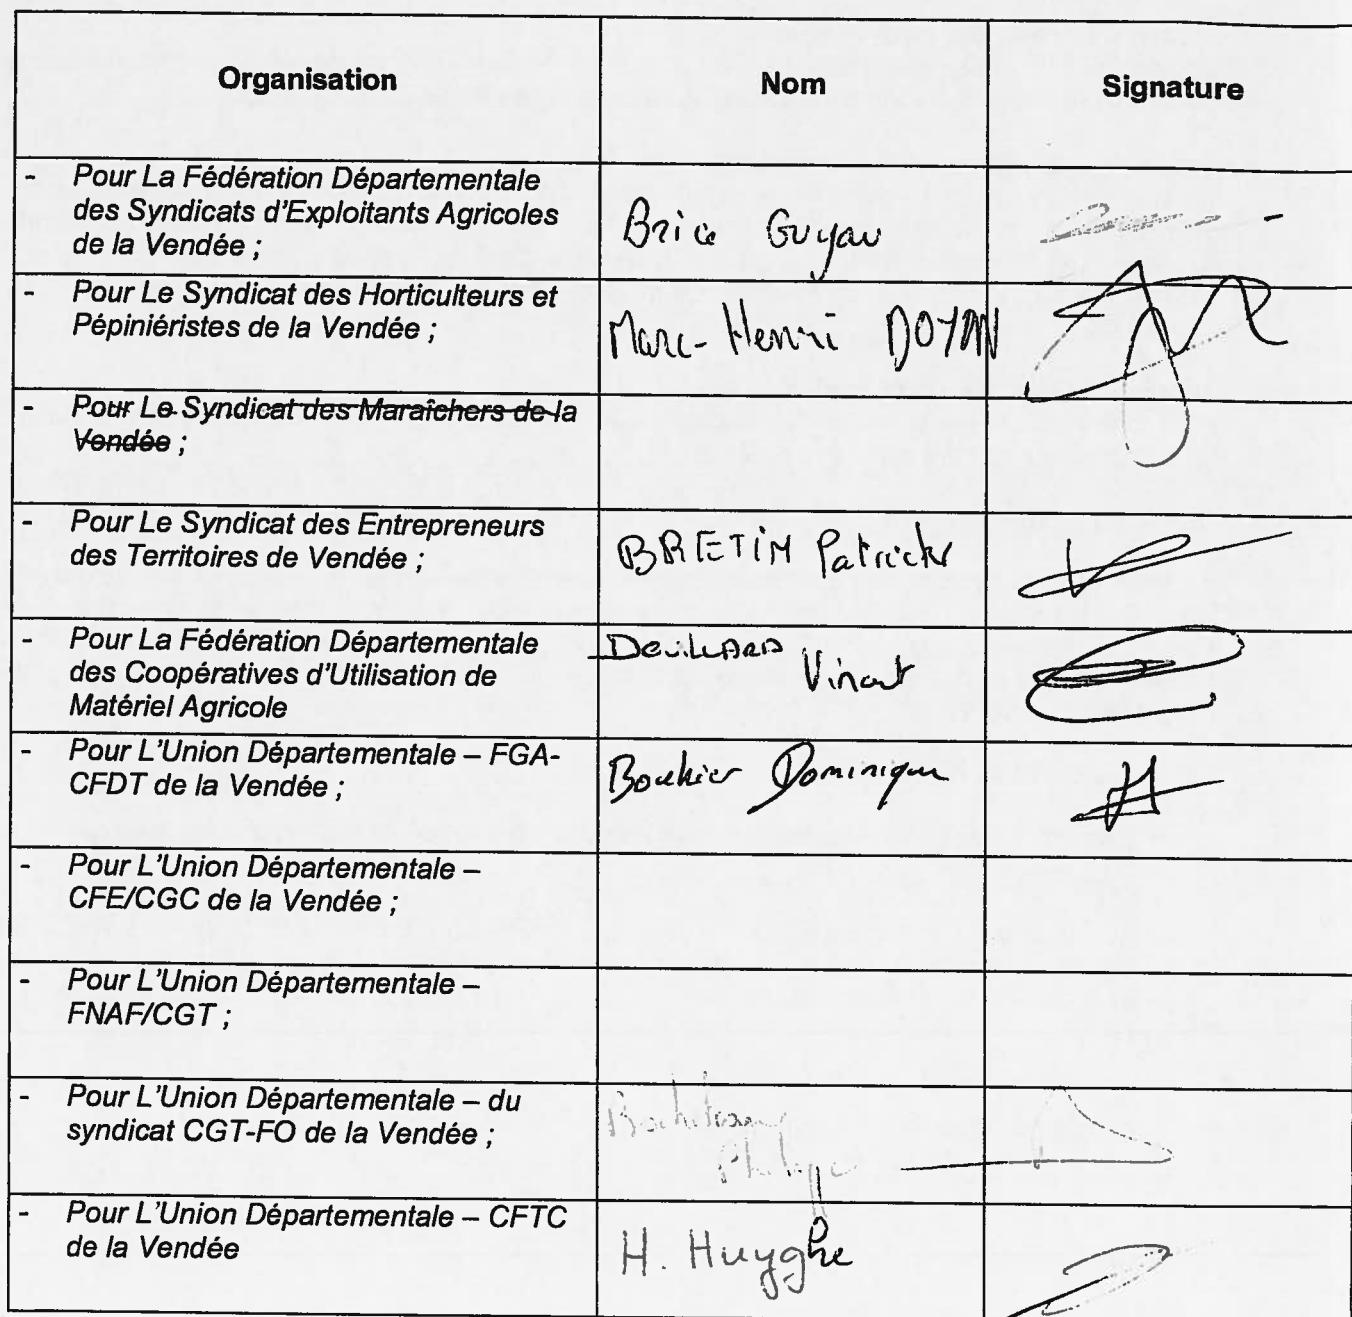 Organisation
Nom
Signature
- Pour La Fédération Départementale
des Syndicats d'Exploitants Agricoles
de la Vendée ;
Brice Guyau
- Pour Le Syndicat des Horticulteurs et
Pépiniéristes de la Vendée ;
Marc-Henri DOYON
- Pour Le Syndicat des Maraîchers de la
Vendée ;
- Pour Le Syndicat des Entrepreneurs
des Territoires de Vendée ;
BRETIN Patrick
- Pour La Fédération Départementale
des Coopératives d'Utilisation de
Matériel Agricole
Vincent
- Pour L'Union Départementale – FGA-
CFDT de la Vendée ;
Dominique
- Pour L'Union Départementale –
CFE/CGC de la Vendée ;
- Pour L'Union Départementale –
FNAF/CGT ;
- Pour L'Union Départementale – du
syndicat CGT-FO de la Vendée ;
Philippe
- Pour L'Union Départementale – CFTC
de la Vendée
H. Huyghe